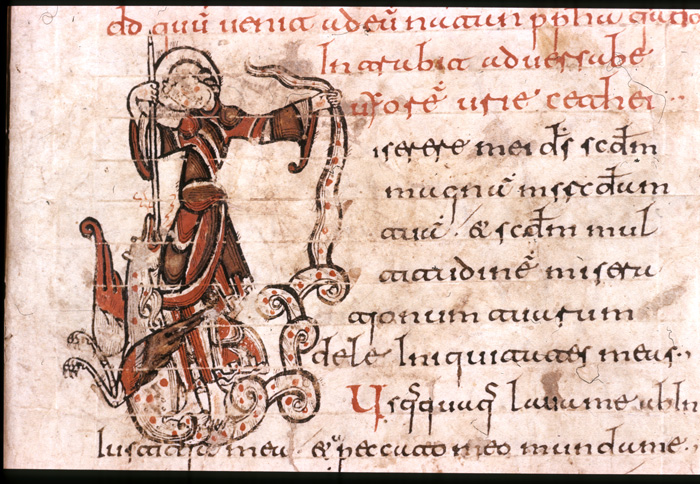 ad quū uenit ad eū natan ppha quādo
Intrabit ad uersabe
uxorē urie cethei
iserere mei ds̄ scd̄m
magnā mscdam
tuā . & scd̄m mul
titudinē misera
tjonum tuarum
dele Iniquitates meas .
Usq̄quaq̄ laua me ab In
Iustitia mea . & peccato meo munda me .